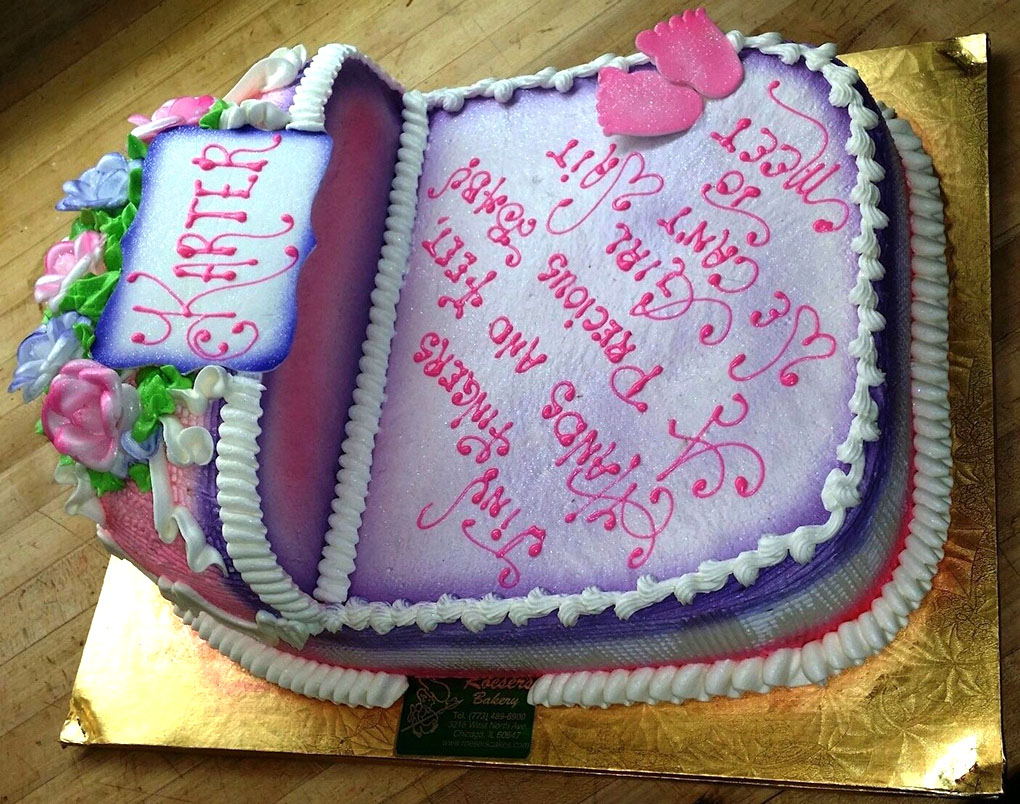 KARTER
Tiny Fingers
Hands and Feet,
A Precious Baby
Girl
We Can't Wait
To Meet
Roesers
Bakery
Tel. (773) 489-6900
3216 West North Ave.
Chicago, IL 60647
www.roeserscakes.com